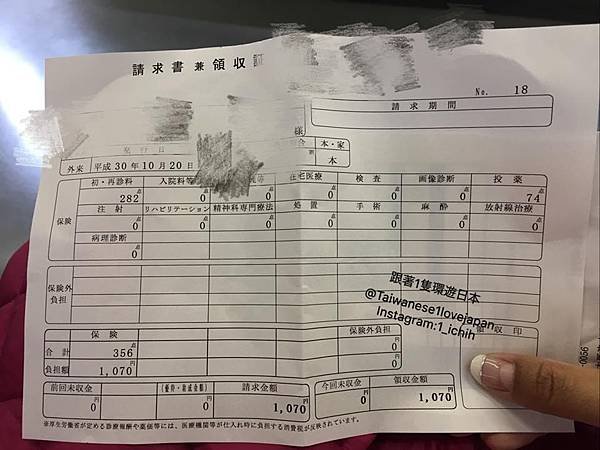 請求書兼領収
No. 18
請求期間
様
発行日
本・家
外来 平成30年10月20日
本
初・再診料 入院料等 等 在宅医療 検査 画像診断 投薬
282点 0点 0点 0点 0点 0点 74点
保険
注射 リハビリテーション 精神科専門療法 処置 手術 麻酔 放射線治療
0点 0点 0点 0点 0点 0点 0点
病理診断
0点
保険外負担
跟著1隻環遊日本
@Taiwanese1lovejapan
Instagram:1_ichih
保険 保険外負担 領収印
合計 356点 0円
負担額 1,070円 0円
前回未収金 (優待・助成金額) 請求金額 今回未収金 領収金額
0円 0円 1,070円 0円 1,070円
※厚生労働省が定める診療報酬や薬価等には、医療機関等が仕入れ時に負担する消費税が反映されています。